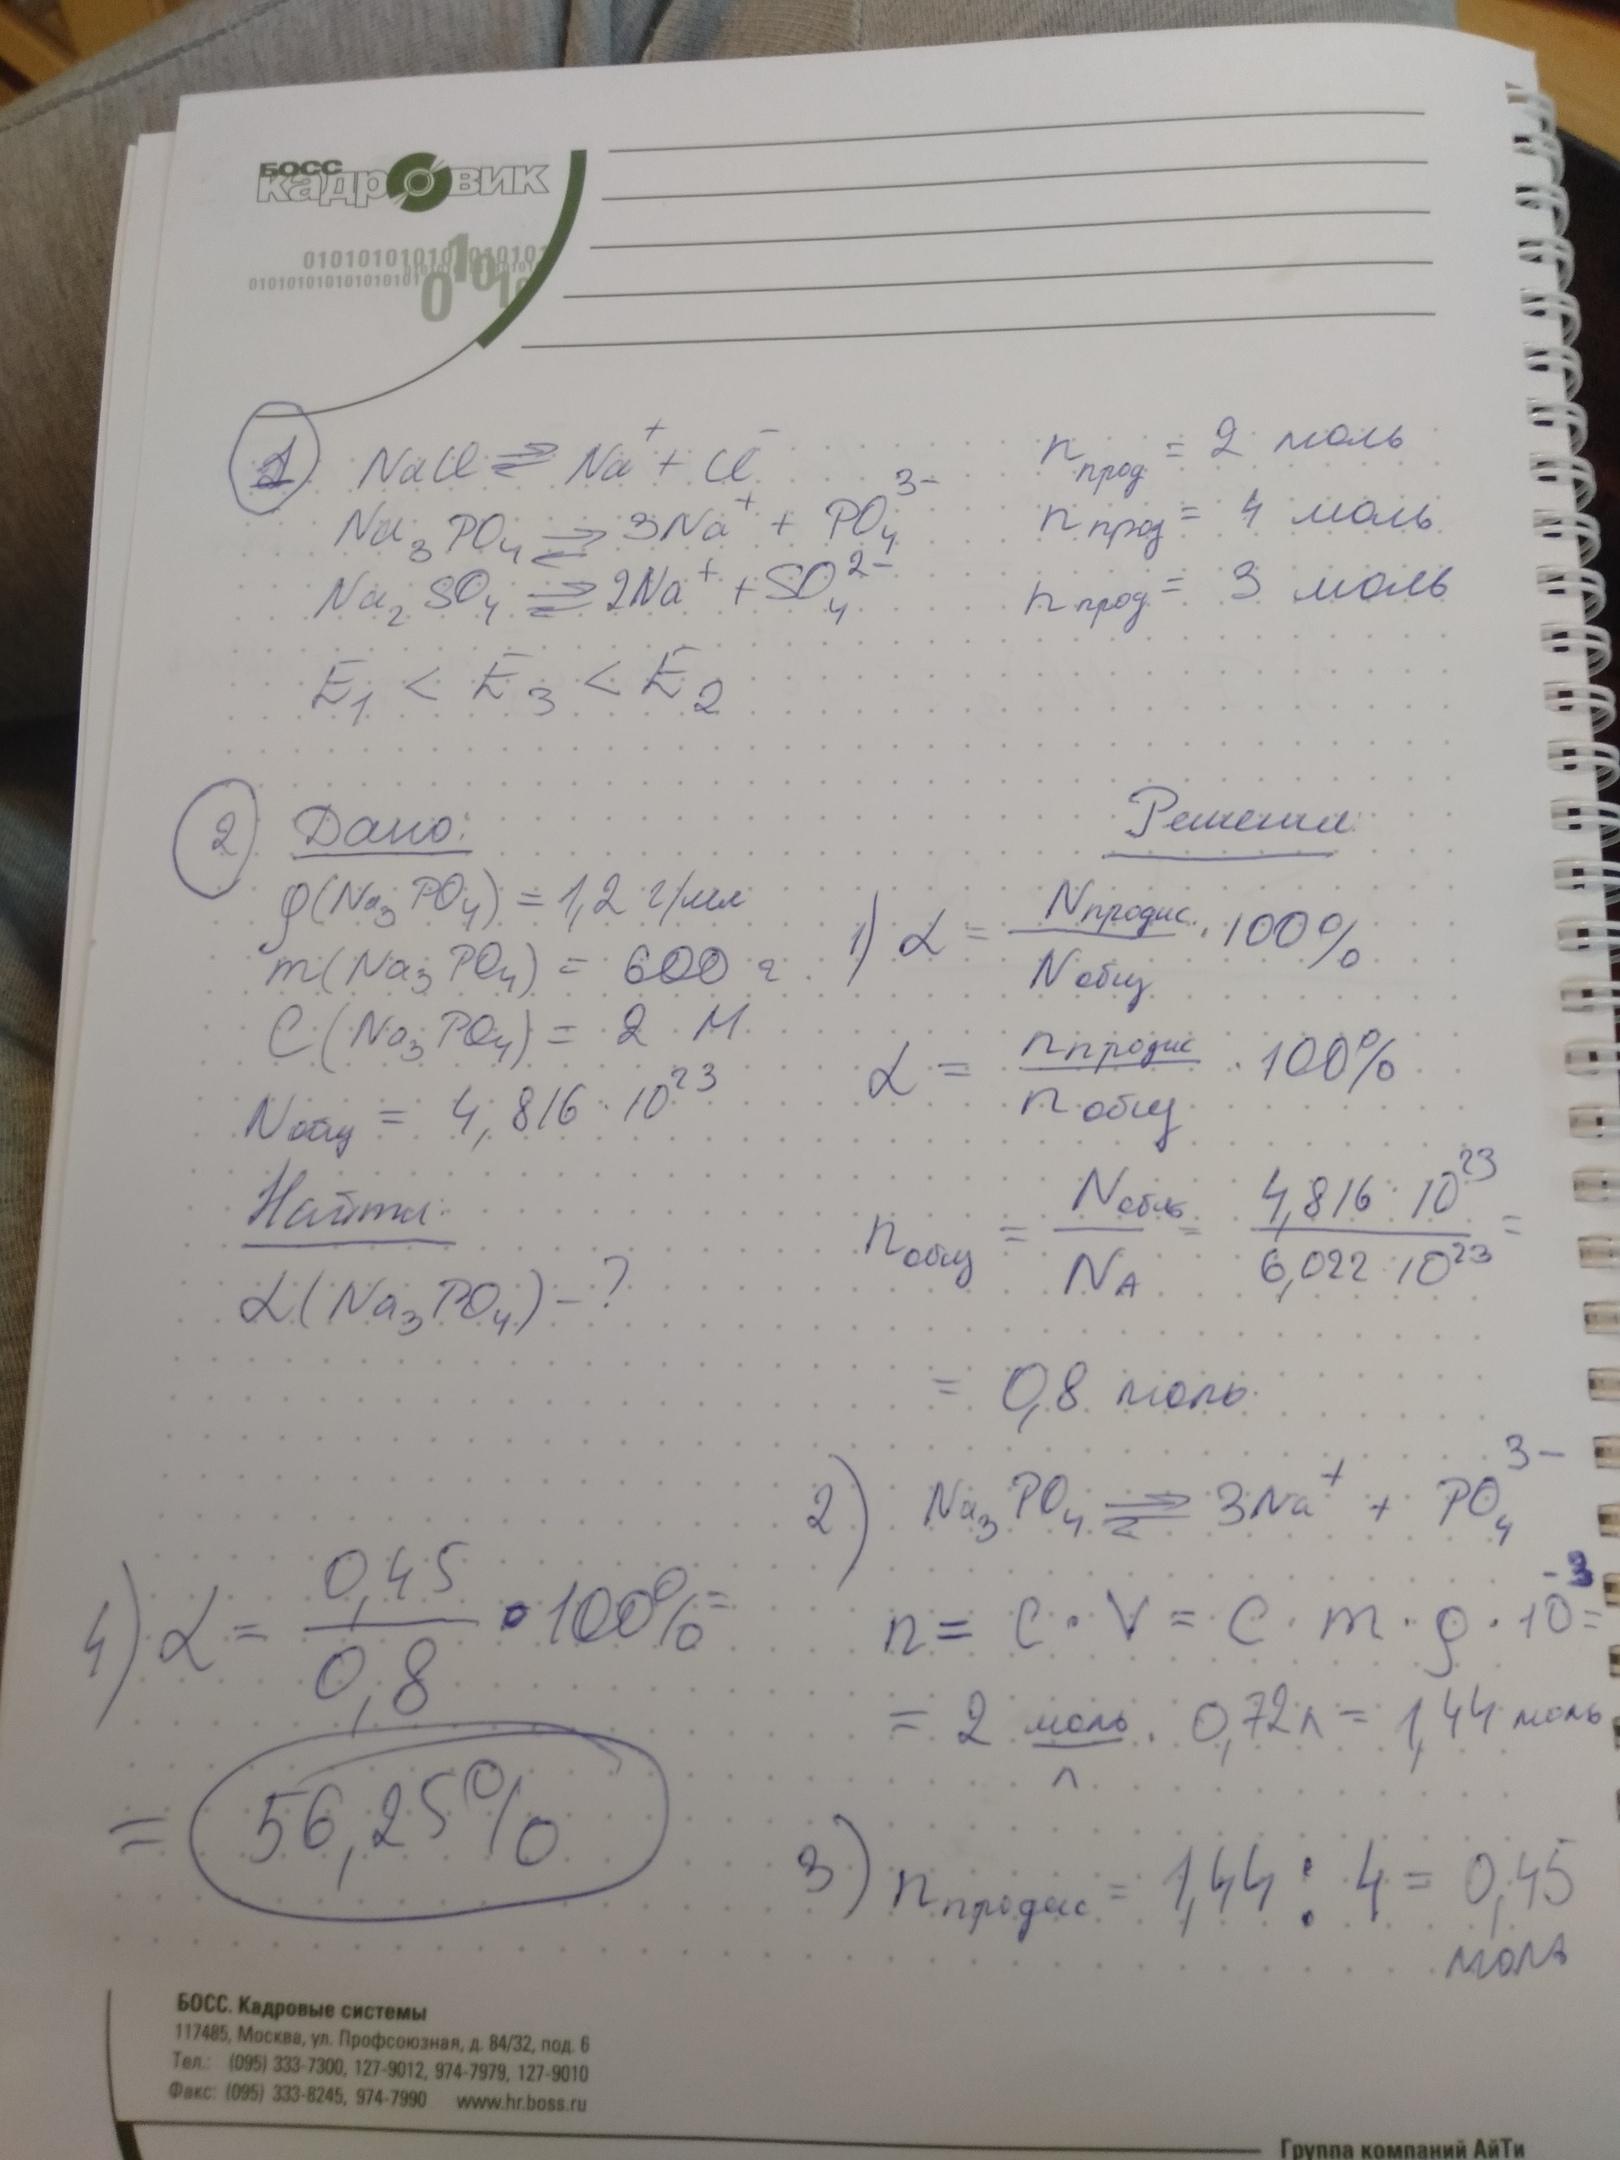 БОСС
кадровик
① NaCl ⇄ Na⁺ + Cl⁻ nпрод = 2 моль
Na₃PO₄ ⇄ 3Na⁺ + PO₄³⁻ nпрод = 4 моль
Na₂SO₄ ⇄ 2Na⁺ + SO₄²⁻ nпрод = 3 моль
E₁ < E₃ < E₂
② Дано:
ρ(Na₃PO₄) = 1,2 г/мл
m(Na₃PO₄) = 600 г
C(Na₃PO₄) = 2 М
Nобщ = 4,816 · 10²³
Найти:
α(Na₃PO₄) - ?
Решения
1) α = Nпродис. / Nобщ · 100%
α = nпродис / nобщ · 100%
nобщ = Nобщ / NA = 4,816 · 10²³ / 6,022 · 10²³ =
= 0,8 моль
2) Na₃PO₄ ⇄ 3Na⁺ + PO₄³⁻
n = C · V = C · m · ρ · 10⁻³ =
= 2 моль/л · 0,72л = 1,44 моль
3) nпродис = 1,44 : 4 = 0,45
моль
4) α = 0,45 / 0,8 · 100% =
= 56,25%
БОСС. Кадровые системы
117485, Москва, ул. Профсоюзная, д. 84/32, под. 6
Тел.: (095) 333-7300, 127-9012, 974-7979, 127-9010
Факс: (095) 333-8245, 974-7990 www.hr.boss.ru
Группа компаний АйТи